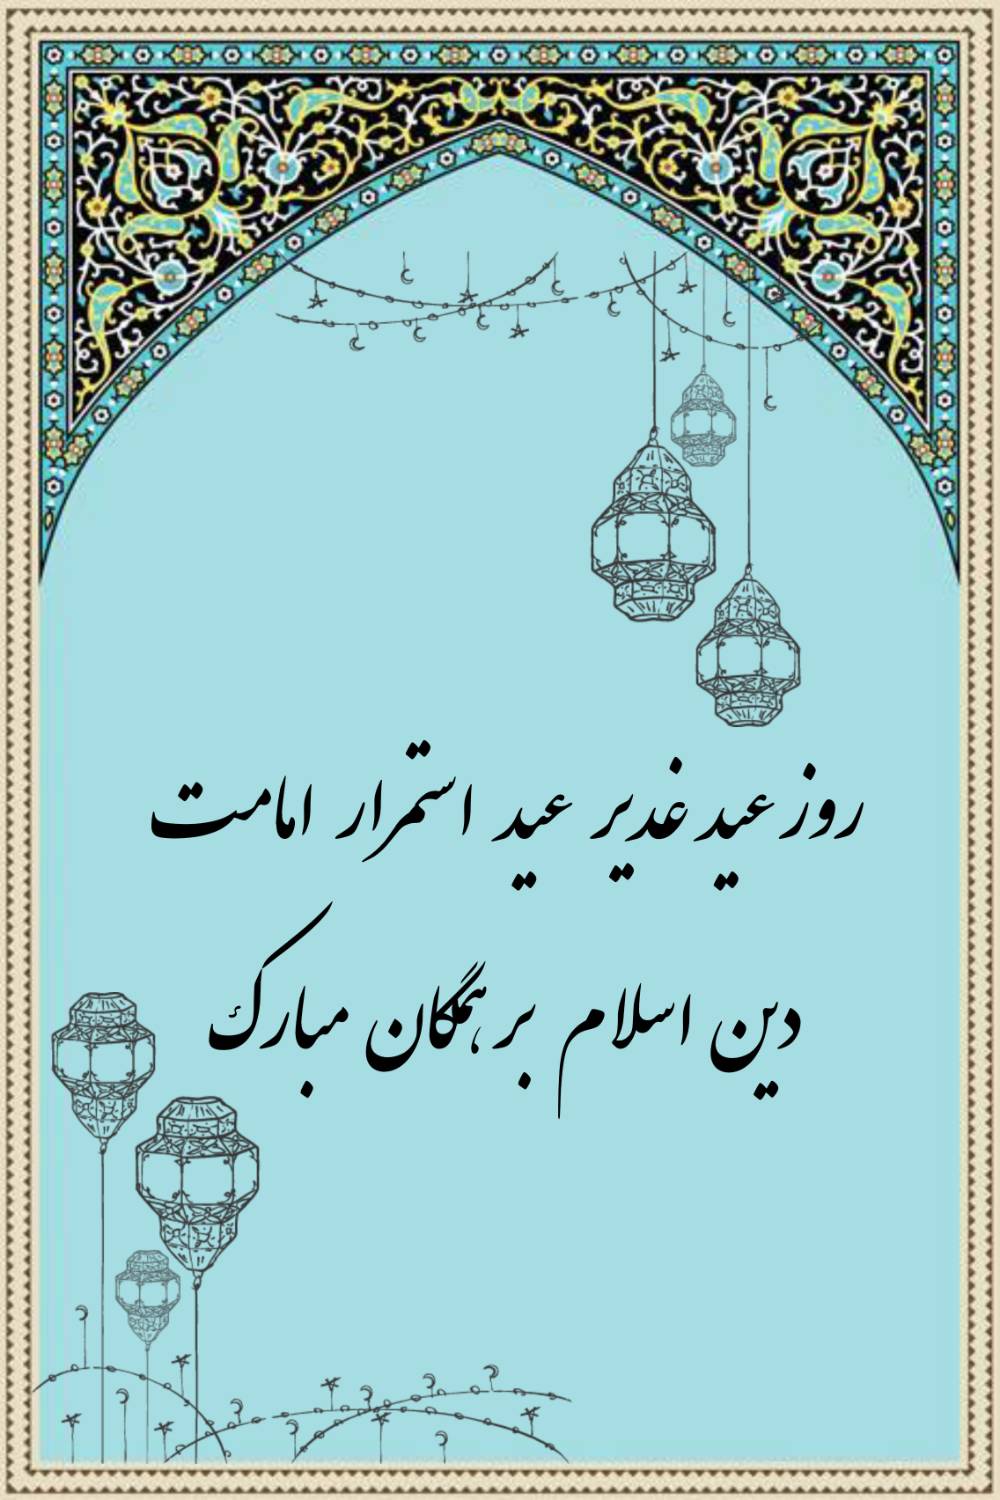 روز عید غدیر عید استمرار امامت
دین اسلام بر همگان مبارک